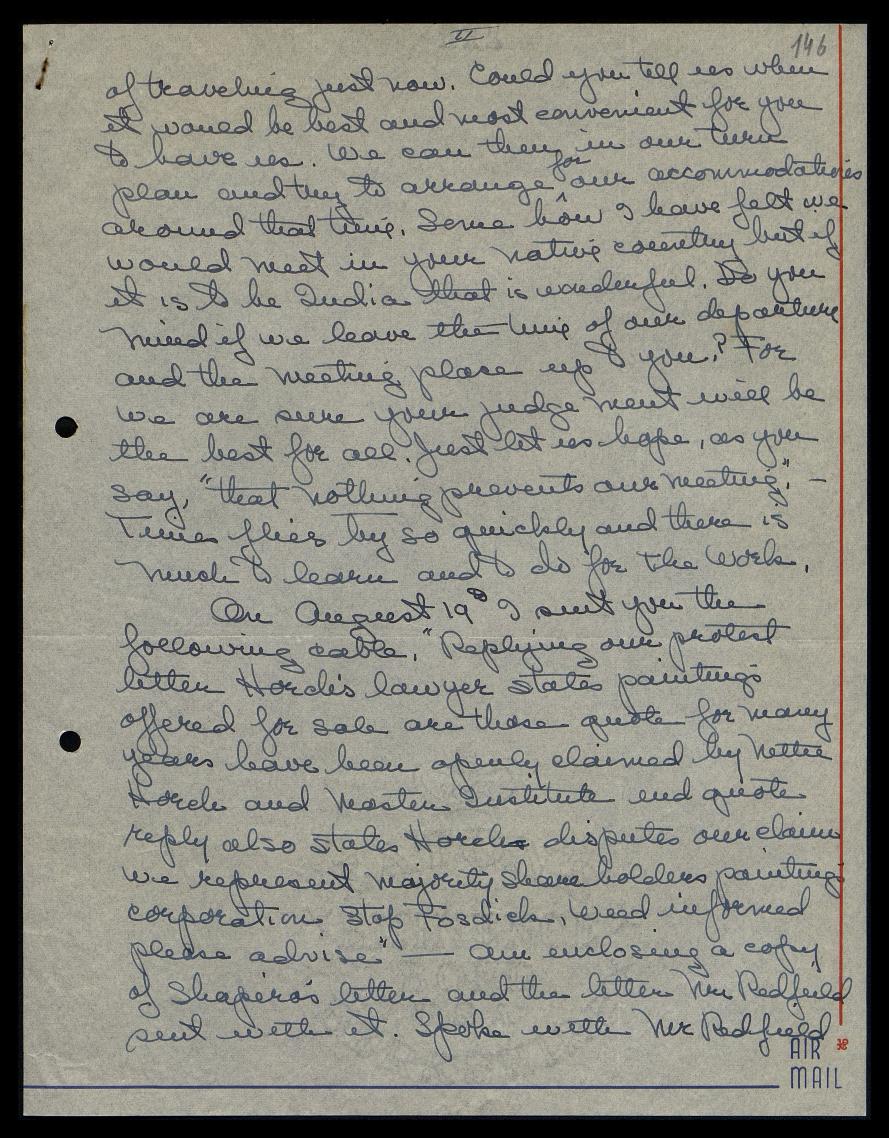 II
146
of traveling just now. Could you tell us when
it would be best and most convenient for you
to have us. We can then, in our turn
plan and try to arrange for our accommodations
around that time. Some how I have felt we
would meet in your native country but if
it is to be India that is wonderful. Do you
mind if we leave the time of our departure
and the meeting place up to you? For
we are sure your judgement will be
the best for all. Just let us hope, as you
say, "that nothing prevents our meeting". —
Time flies by so quickly and there is
much to learn and to do for the Work.
On August 19th I sent you the
following cable, "Replying our protest
letter Horch's lawyer states paintings
offered for sale are those quote for many
years have been openly claimed by Nettie
Horch and Master Institute end quote
reply also states Horch disputes our claim
we represent majority shareholders paintings
corporation stop Fosdick, Weed informed
please advise" — Am enclosing a copy
of Shapiro's letter and the letter Mr. Redfield
sent with it. Spoke with Mr Redfield
AIR
MAIL